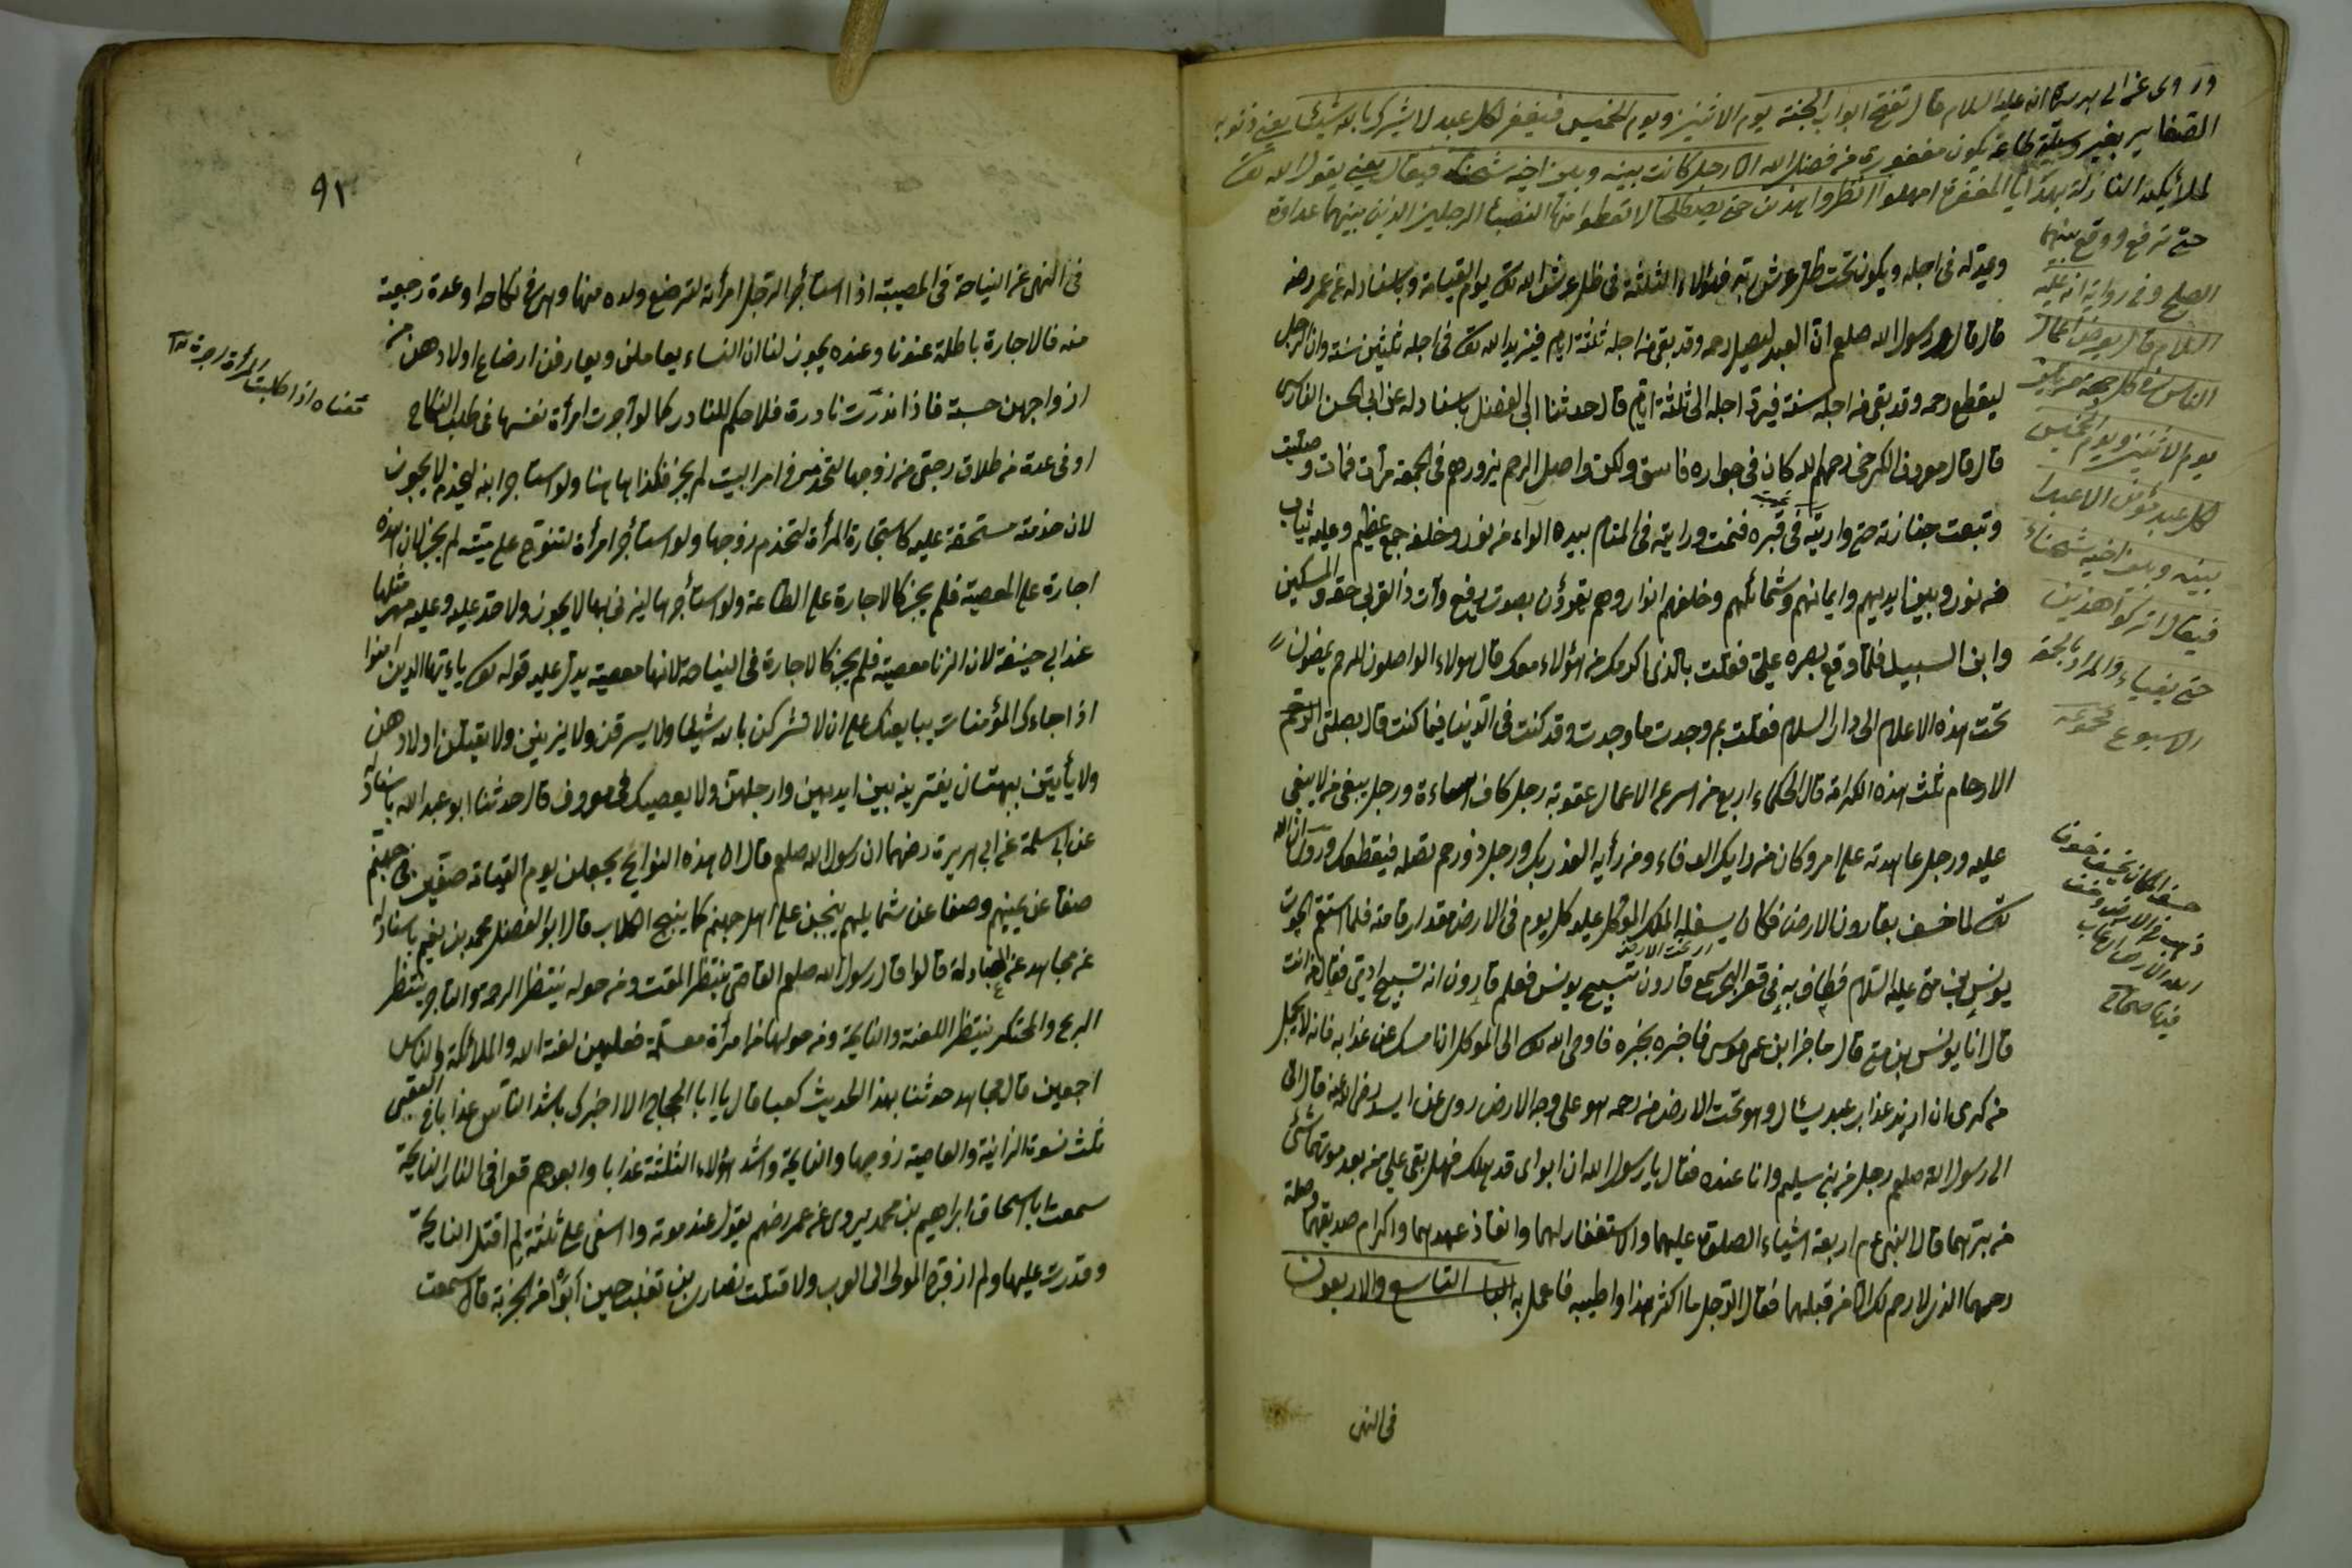 وروى عن ابى هريرة انه عليه السلام قال تفتح ابواب الجنة يوم الاثنين ويوم الخميس فيغفر لكل عبد لا يشرك بالله شيئا يعني ذنوبه
الصغاير بغير وسيلة طاعة تكون مغفورة من فضل الله الا رجل كانت بينه وبين اخيه شحناء فيقال يعني يقول الله تع
للملائكة النازلة بهدايا المغفرة امهلوا انظروا هذين حتى يصطلحا لا تعطوا منها انصباء الرجلين الذين بينهما عداوة
حتى ترفع ووقع بينهما
الصلح وفي رواية انه عليه
السلام قال يعرض اعمال
الناس في كل جمعة مرتين
يوم الاثنين ويوم الخميس
لكل عبد مؤمن الا عبدا
بينه وبين اخيه شحناء
فيقال اتركوا هذين
حتى يفيئا والمراد بالجمعة
الاسبوع
وعدله في اجله ويكون تحت ظل عرش ربه فهؤلاء الثلثة في ظل عرش الله تع يوم القيامة وباسناد له عن عمر رضه
قال قال رسول الله صلعم ان العبد ليصل رحمه وقد بقي من اجله ثلثة ايام فيزيد الله تع في اجله ثلثين سنة وان الرجل
ليقطع رحمه وقد بقي من اجله سنة فيرد اجله الى ثلثة ايام قال حدثنا ابى الفضل باسناد له عن ابى الحسن الفارسى
قال قال معروف الكرخي رحمهم الله كان في جواره فاسق ولكن واصل الرحم يزورهم في الجمعة مرات فمات وصليت
وتبعت جنازته حتى واريته في قبره فنمت ورايته في المنام بيده الواء من نور وخلفه جمع عظيم وعليه ثياب
من نور وبين ايديهم وايمانهم وشمائلهم وخلفهم انوار وهم يقرؤن بصوت رفع وآت ذا القربى حقه والمسكين
وابن السبيل فلما وقع بصره علي فقلت بالذي اكرمك من هؤلاء معك قال هولاء الواصلون للرحم يمضون
تحت هذه الاعلام الى دار السلام فقلت بم وجدت ما وجدت وقد كنت في الدنيا فيما كنت قال بصلتى الرحم
الارحام ثلث هذه الكرامة قال الحكماء اربع من اسرع الاعمال عقوبة رجل كان اساءة ورجل يبغى من لا يبغى
عليه ورجل عاهدته على امر وكان من رايك الوفاء ومن رأيه الغدر بك ورجل ذو رحم تصله فيقطعك وروى ان الله
تع لما خسف بقارون الارض فكان يسفله الملك الموكل عليه كل يوم في الارض مقدار قامته فلما التقم الحوت
يونس بن متى عليه السلام فطاف به في قعر البحر سمع قارون تسبيح يونس فعلم قارون انه تسبيح ادمى فقال من انت
قال انا يونس بن متى قال ما خبر ابن عمى موسى فاخبره بخبره فاوحى الله تع الى الموكل ان امسك عن عذابه فانه لا يجمل
من كرمى ان اريد عذاب عبد يسأل وهو تحت الارض من رحمه هو على وجه الارض روى عن اسيد رضي الله عنه قال اتى
الى رسول الله صلعم رجل من بنى سليم وانا عنده فقال يا رسول الله ان ابواى قد هلك فهل بقى علي من بعد موتهما شئ
من برهما قال النبى عم اربعة اشياء الصلوة عليهما والاستغفار لهما وانفاذ عهدهما واكرام صديقهما وصلة
رحمهما الذي لا رحم لك الا من قبلهما فقال الرجل ما اكثر هذا واطيبه فاعمل به الباب التاسع والاربعون
في النهى
٩٢
في النهى عن النياحة في المصيبة اذا استأجر الرجل امرأته لترضع ولده منها وهي في نكاحه او عدة رجعية
منه فالاجارة باطلة عندنا وعنده يجوز لنا ان النساء يعاملن ويعارفن ارضاع اولادهن من
ازواجهن حسبة فاذا ندرت نادرة فلا حكم للنادر كما لو آجرت امرأة نفسها في طلب النكاح
او في عدة من طلاق رجعى من زوجها لتخدمه في امر البيت لم يجز فكذا هاهنا ولو استاجر ابنه ليخدمه لا يجوز
لان خدمته مستحقة عليه كاستجارة المرأة لتخدم زوجها ولو استأجر امرأة لتنوح على ميته لم يجز لان هذه
اجارة على المعصية فلم يجز كالاجارة على الطاعة ولو استأجرها ليزنى بها لا يجوز ولا حد عليه وعليه مهر مثلها
عند ابى حنيفة لان الزنا معصية فلم يجز كالاجارة في النياحة لانها معصية يدل عليه قوله تع يا ءيها الذين امنوا
اذا جاءك المؤمنات يبايعنك على ان لا يشركن بالله شيئا ولا يسرقن ولا يزنين ولا يقتلن اولادهن
ولا يأتين ببهتان يفترينه بين ايديهن وارجلهن ولا يعصينك في معروف قال حدثنا ابو عبد الله باسناد
عن ابى سلمة عن ابى هريرة رضهما ان رسول الله صلعم قال ان هذه النوايح يجعلن يوم القيامة صفين في جهنم
صفا عن يمينهم وصفا عن شمايلهم ينبحن على اهل جهنم كما ينبح الكلاب قال ابو الفضل محمد بن نعيم باسناد له
عن مجاهد عن العبادلة قالوا قال رسول الله صلعم القاص ينتظر المقت ومن حوله ينتظر الرحمة والتاجر ينتظر
الربح والمحتكر ينتظر اللعنة والنايحة ومن حولها من امرأة مسلمة فعليهن لعنة الله والملائكة والناس
اجمعين قال مجاهد حدثنا بهذا الحديث كعبا قال يا ابا الحجاج الا اخبرك باشد الناس عذابا في العقبى
ثلث نسوة الزانية والعاصية زوجها والنايحة واشد هؤلاء الثلثة عذابا وابعدهم قعرا في النار النايحة
سمعت باسحاق ابراهيم بن محمد يروى عن عمر رضهم يقول عند موته وا اسفى على ثلثة لم اقتل النايحة
وقدرت عليها ولم ارد المولى الى العرب ولا قتلت نصارى بن تغلب حين ابوا من الجزية قال سمعت